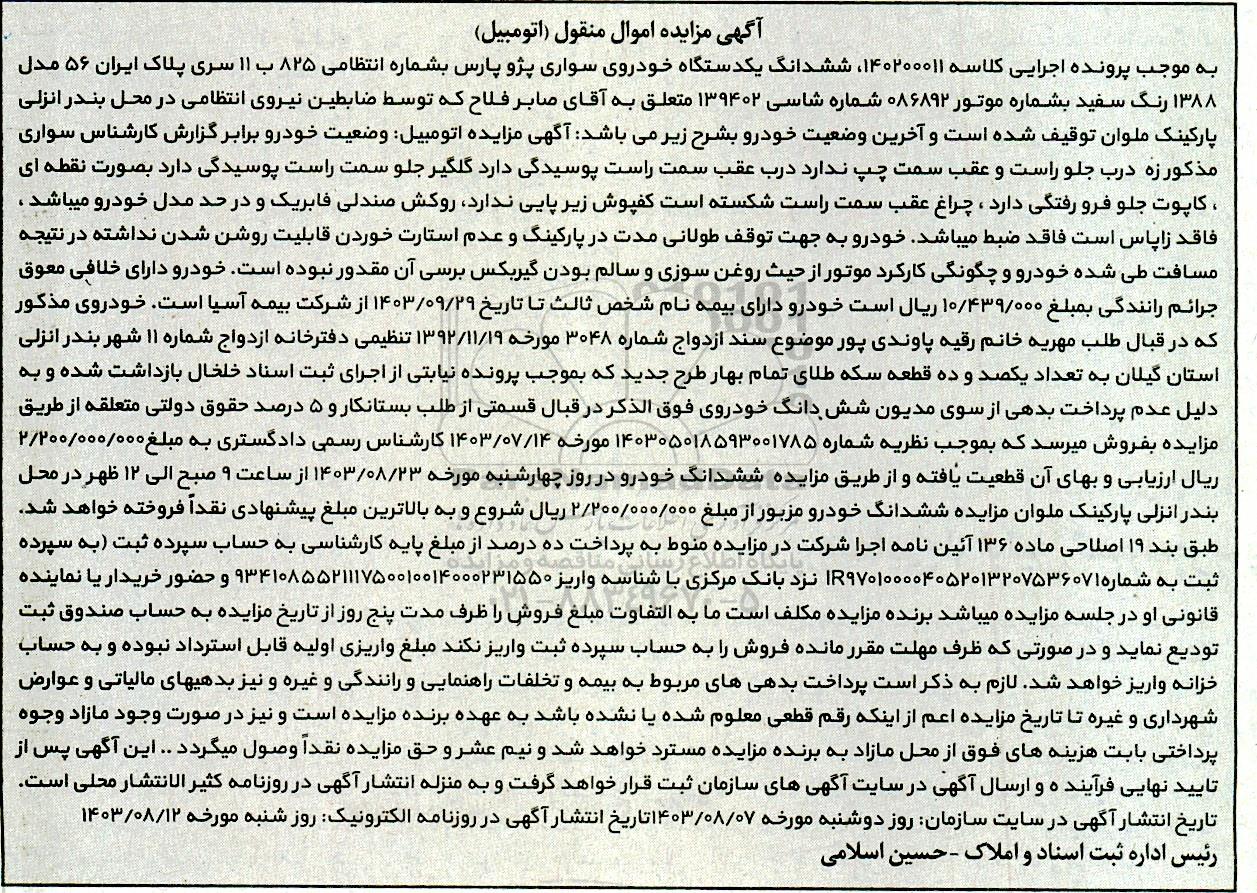 آگهی مزایده اموال منقول (اتومبیل)
به موجب پرونده اجرایی کلاسه ۱۴۰۲۰۰۰۱۱، ششدانگ یکدستگاه خودروی سواری پژو پارس بشماره انتظامی ۸۲۵ ب ۱۱ سری پلاک ایران ۵۶ مدل
۱۳۸۸ رنگ سفید بشماره موتور ۰۸۶۸۹۲ شماره شاسی ۱۳۹۴۰۲ متعلق به آقای صابر فلاح که توسط ضابطین نیروی انتظامی در محل بندر انزلی
پارکینک ملوان توقیف شده است و آخرین وضعیت خودرو بشرح زیر می باشد: آگهی مزایده اتومبیل: وضعیت خودرو برابر گزارش کارشناس سواری
مذکور زه درب جلو راست و عقب سمت چپ ندارد درب عقب سمت راست پوسیدگی دارد گلگیر جلو سمت راست پوسیدگی دارد بصورت نقطه ای
، کاپوت جلو فرو رفتگی دارد ، چراغ عقب سمت راست شکسته است کفپوش زیر پایی ندارد، روکش صندلی فابریک و در حد مدل خودرو میباشد ،
فاقد زاپاس است فاقد ضبط میباشد. خودرو به جهت توقف طولانی مدت در پارکینگ و عدم استارت خوردن قابلیت روشن شدن نداشته در نتیجه
مسافت طی شده خودرو و چگونگی کارکرد موتور از حیث روغن سوزی و سالم بودن گیربکس برسی آن مقدور نبوده است. خودرو دارای خلافی معوق
جرائم رانندگی بمبلغ ۱۰/۴۳۹/۰۰۰ ریال است خودرو دارای بیمه نام شخص ثالث تا تاریخ ۱۴۰۳/۰۹/۲۹ از شرکت بیمه آسیا است. خودروی مذکور
که در قبال طلب مهریه خانم رقیه پاوندی پور موضوع سند ازدواج شماره ۳۰۴۸ مورخه ۱۳۹۲/۱۱/۱۹ تنظیمی دفترخانه ازدواج شماره ۱۱ شهر بندر انزلی
استان گیلان به تعداد یکصد و ده قطعه سکه طلای تمام بهار طرح جدید که بموجب پرونده نیابتی از اجرای ثبت اسناد خلخال بازداشت شده و به
دلیل عدم پرداخت بدهی از سوی مدیون شش دانگ خودروی فوق الذکر در قبال قسمتی از طلب بستانکار و ۵ درصد حقوق دولتی متعلقه از طریق
مزایده بفروش میرسد که بموجب نظریه شماره ۱۴۰۳۰۵۰۱۸۵۹۳۰۰۱۷۸۵ مورخه ۱۴۰۳/۰۷/۱۴ کارشناس رسمی دادگستری به مبلغ۲/۲۰۰/۰۰۰/۰۰۰
ریال ارزیابی و بهای آن قطعیت یافته و از طریق مزایده ششدانگ خودرو در روز چهارشنبه مورخه ۱۴۰۳/۰۸/۲۳ از ساعت ۹ صبح الی ۱۲ ظهر در محل
بندر انزلی پارکینک ملوان مزایده ششدانگ خودرو مزبور از مبلغ ۲/۲۰۰/۰۰۰/۰۰۰ ریال شروع و به بالاترین مبلغ پیشنهادی نقداً فروخته خواهد شد.
طبق بند ۱۹ اصلاحی ماده ۱۳۶ آئین نامه اجرا شرکت در مزایده منوط به پرداخت ده درصد از مبلغ پایه کارشناسی به حساب سپرده ثبت (به سپرده
ثبت به شماره IR۹۷۰۱۰۰۰۰۴۰۵۲۰۱۳۲۰۷۵۳۶۰۷۱ نزد بانک مرکزی با شناسه واریز ۹۳۴۱۰۸۵۵۲۱۱۱۷۵۰۰۱۰۰۱۴۰۰۰۲۳۱۵۵۰ و حضور خریدار یا نماینده
قانونی او در جلسه مزایده میباشد برنده مزایده مکلف است ما به التفاوت مبلغ فروش را ظرف مدت پنج روز از تاریخ مزایده به حساب صندوق ثبت
تودیع نماید و در صورتی که ظرف مهلت مقرر مانده فروش را به حساب سپرده ثبت واریز نکند مبلغ واریزی اولیه قابل استرداد نبوده و به حساب
خزانه واریز خواهد شد. لازم به ذکر است پرداخت بدهی های مربوط به بیمه و تخلفات راهنمایی و رانندگی و غیره و نیز بدهیهای مالیاتی و عوارض
شهرداری و غیره تا تاریخ مزایده اعم از اینکه رقم قطعی معلوم شده یا نشده باشد به عهده برنده مزایده است و نیز در صورت وجود مازاد وجوه
پرداختی بابت هزینه های فوق از محل مازاد به برنده مزایده مسترد خواهد شد و نیم عشر و حق مزایده نقداً وصول میگردد .. این آگهی پس از
تایید نهایی فرآیند ه و ارسال آگهی در سایت آگهی های سازمان ثبت قرار خواهد گرفت و به منزله انتشار آگهی در روزنامه کثیر الانتشار محلی است.
تاریخ انتشار آگهی در سایت سازمان: روز دوشنبه مورخه ۱۴۰۳/۰۸/۰۷تاریخ انتشار آگهی در روزنامه الکترونیک: روز شنبه مورخه ۱۴۰۳/۰۸/۱۲
رئیس اداره ثبت اسناد و املاک -حسین اسلامی